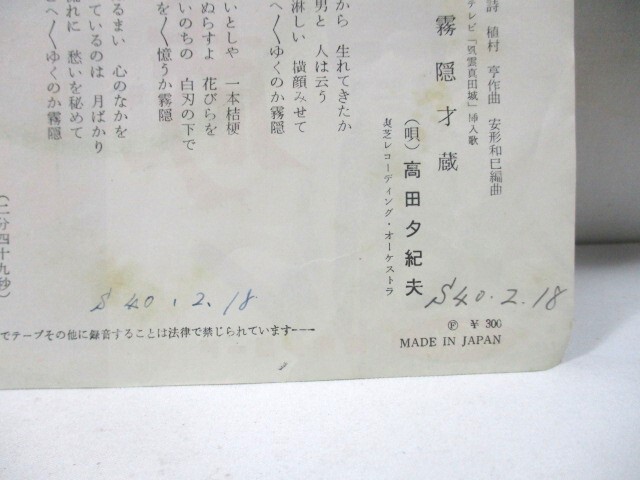 詩 植村 亨作曲 安形和巳編曲
テレビ「風雲真田城」挿入歌
霧隠才蔵
(唄)高田夕紀夫
東芝レコーディング・オーケストラ
から 生れてきたか
男と 人は云う
淋しい 横顔みせて
へ〳〵ゆくのか霧隠
いとしや 一本桔梗
ぬらすよ 花びらを
いのちの 白刃の下で
を〳〵憶うか霧隠
るまい 心のなかを
ているのは 月ばかり
れに 愁いを秘めて
へ〳〵ゆくのか霧隠
(二分四十九秒)
S40.2.18
S40.2.18
でテープその他に録音することは法律で禁じられています——
Ⓟ ¥ 300
MADE IN JAPAN